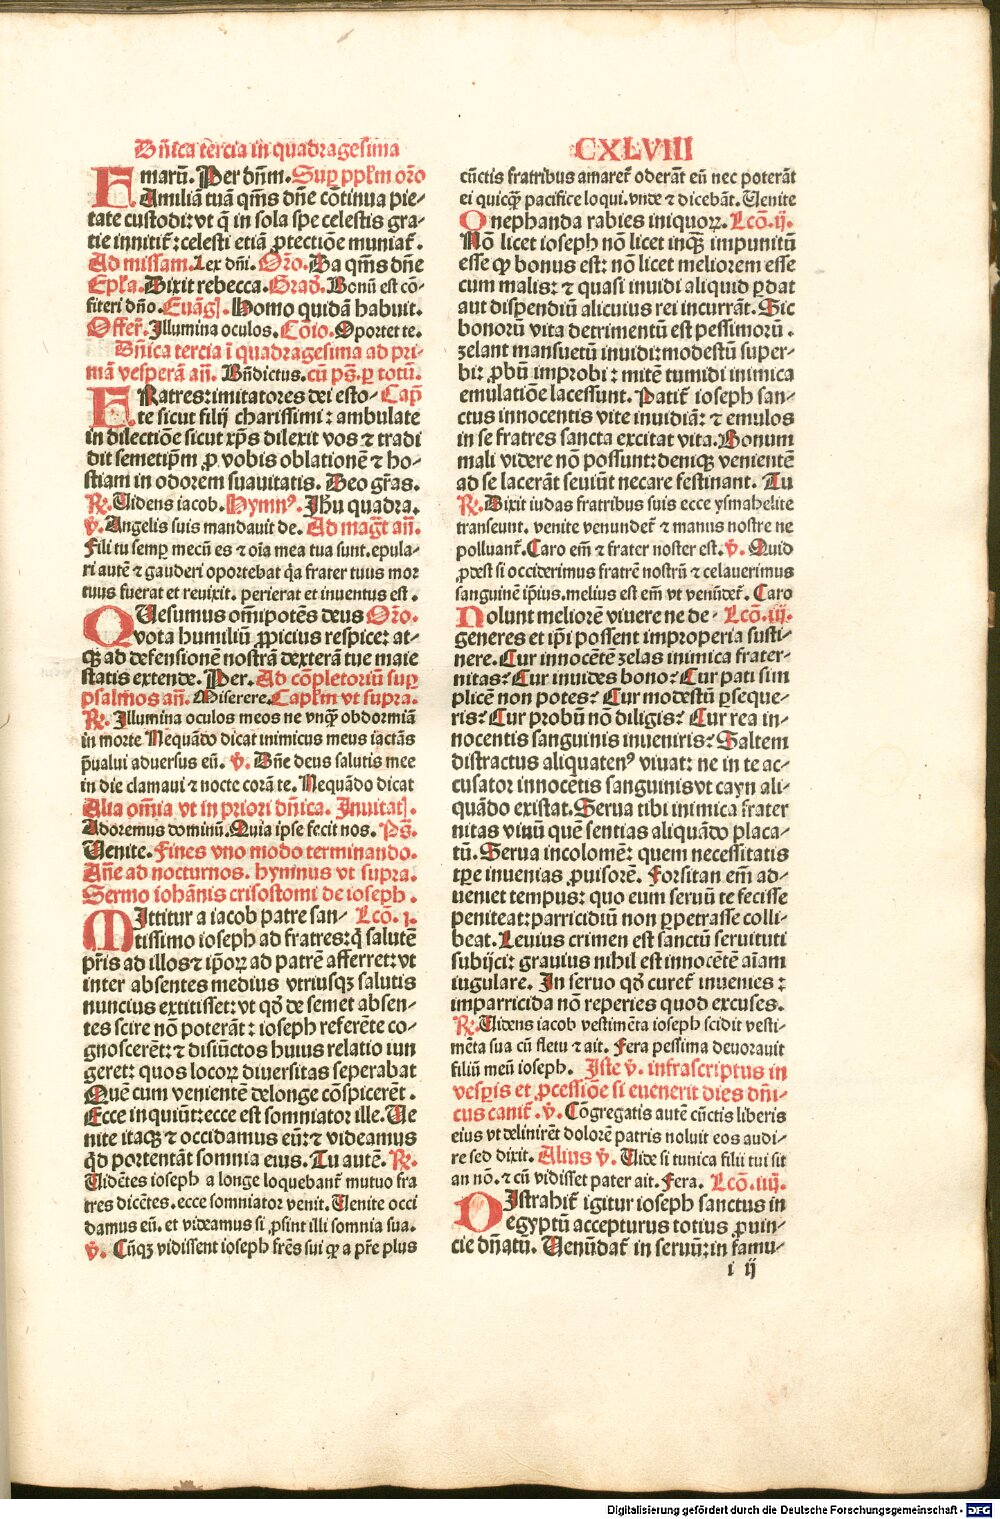 Dñica tercia in quadragesima
CXLVIII
marũ. Per dñm. Sup pplm oro
Familiã tuã q̃ms dñe cõtinua pie-
tate custodi: vt q̃ in sola spe celestis gra-
tie innitit᷑: celesti etiã ꝓtectiõe muniat᷑.
Ad missam. Lex dñi. Oro. Da q̃ms dñe
Ep̃la. Dixit rebecca. Grad̃. Bonũ est cõ-
fiteri dño. Euãgl. Homo quidã habuit.
Offer̃. Illumina oculos. Cõio. Oportet te.
Dñica tercia ĩ quadragesima ad pri-
mã vesperã añ. Bñdictus. cũ ps. ꝑ totũ.
FRatres: imitatores dei esto- Cap̃
te sicut filij charissimi: ambulate
in dilectiõe sicut xp̃s dilexit vos ⁊ tradi
dit semetip̃m ꝓ vobis oblationẽ ⁊ ho-
stiam in odorem suauitatis. Deo gr̃as.
℟. Uidens iacob. Hymnꝰ. Jhũ quadra.
℣. Angelis suis mandauit de. Ad mag̃t añ.
Fili tu semꝑ mecũ es ⁊ oĩa mea tua sunt. epula-
ri autẽ ⁊ gauderi oportebat q̃a frater tuus mor
tuus fuerat et reuixit. perierat et inuentus est.
QUesumus om̃ipotẽs deus Oro.
vota humiliũ ꝓpicius respice: at-
qꝫ ad defensionẽ nostrã dexterã tue maie
statis extende. Per. Ad cõpletoriũ suꝑ
psalmos añ. Miserere. Caplm vt supra.
℟. Illumina oculos meos ne vnqꝫ obdormiã
in morte Nequãdo dicat inimicus meus iactãs
p̃ualui aduersus eũ. ℣. Dñe deus salutis mee
in die clamaui ⁊ nocte corã te. Nequãdo dicat
Alia om̃ia vt in priori dñica. Inuitat̃.
Adoremus dominũ. Quia ipse fecit nos. Ps.
Uenite. Fines vno modo terminando.
Añe ad nocturnos. hymnus vt supra.
Sermo iohãnis crisostomi de ioseph.
MIttitur a iacob patre san- Lcõ. i.
tissimo ioseph ad fratres: q̃ salutẽ
pr̃is ad illos ⁊ ip̃oꝝ ad patrẽ afferret: vt
inter absentes medius vtriusqꝫ salutis
nuncius extitisset: vt qd̃ de semet absen-
tes scire nõ poterãt: ioseph referẽte co-
gnoscerẽt: ⁊ disiũctos huius relatio iun
geret: quos locoꝝ diuersitas seperabat
Quẽ cum venientẽ delonge cõspicerẽt.
Ecce inquiũt: ecce est somniator ille. Ue
nite itaqꝫ ⁊ occidamus eũ: ⁊ videamus
q̃d portentãt somnia eius. Tu autẽ. ℟.
Uidẽtes ioseph a longe loquebant᷑ mutuo fra
tres dicẽtes. ecce somniator venit. Uenite occi
damus eũ. et videamus si ꝓsint illi somnia sua.
℣. Cũqꝫ vidissent ioseph fr̃es sui qꝫ a pr̃e plus
cũctis fratribus amaret᷑ oderãt eũ nec poterãt
ei quicqꝫ pacifice loqui. vnde ⁊ dicebãt. Uenite
O nephanda rabies iniquoꝝ. Lcõ. ij.
Nõ licet ioseph nõ licet inqꝫ impunitũ
esse qꝫ bonus est: nõ licet meliorem esse
cum malis: ⁊ quasi inuidi aliquid ꝑdat
aut dispendiũ alicuius rei incurrãt. Sic
bonorũ vita detrimentũ est pessimorũ.
zelant mansuetũ inuidi: modestũ super-
bi: ꝓbũ improbi: mitẽ tumidi inimica
emulatiõe lacessunt. Patit᷑ ioseph san-
ctus innocentis vite inuidiã: ⁊ emulos
in se fratres sancta excitat vita. Bonum
mali videre nõ possunt: deniqꝫ venientẽ
ad se lacerãt seuiũt necare festinant. Tu
℟. Dixit iudas fratribus suis ecce ysmahelite
transeunt. venite venundet᷑ ⁊ manus nostre ne
polluant᷑. Caro em̃ ⁊ frater noster est. ℣. Quid
ꝓdest si occiderimus fratrẽ nostrũ ⁊ celauerimus
sanguinẽ ip̃ius. melius est em̃ vt venũdet᷑. Caro
Nolunt meliorẽ viuere ne de- Lcõ. iij.
generes et ip̃i possent improperia susti-
nere. Cur innocẽtẽ zelas inimica frater-
nitas? Cur inuides bono? Cur pati sim
plicẽ non potes? Cur modestũ ꝑseque-
ris? Cur probũ nõ diligis? Cur rea in-
nocentis sanguinis inueniris? Saltem
distractus aliquatenꝰ viuat: ne in te ac-
cusator innocẽtis sanguinis vt cayn ali-
quãdo existat. Serua tibi inimica frater
nitas vinũ quẽ sentias aliquãdo placa-
tũ. Serua incolomẽ: quem necessitatis
tp̃e inuenias ꝓuisorẽ. Forsitan em̃ ad-
ueniet tempus: quo eum seruũ te fecisse
peniteat: parricidiũ non ꝑpetrasse colli-
beat. Leuius crimen est sanctũ seruituti
subijci: grauius nihil est innocẽtẽ aĩam
iugulare. In seruo qd̃ curet᷑ inuenies:
imparricida nõ reperies quod excuses.
℟. Uidens iacob vestimẽta ioseph scidit vesti-
mẽta sua cũ fletu ⁊ ait. Fera pessima deuorauit
filiũ meũ ioseph. Iste ℣. infrascriptus in
vesꝑis et ꝓcessiõe si euenerit dies dñi-
cus canit᷑. ℣. Cõgregatis autẽ cũctis liberis
eius vt delinirẽt dolorẽ patris noluit eos audi-
re sed dixit. Alius ℣. Uide si tunica filii tui sit
an nõ. ⁊ cũ vidisset pater ait. Fera. Lcõ. iiij.
DIstrahit᷑ igitur ioseph sanctus in
egyptũ accepturus totius ꝓuin-
cie dñatũ. Uenũdat᷑ in seruũ: in famu-
i ij
Digitalisierung gefördert durch die Deutsche Forschungsgemeinschaft - DFG